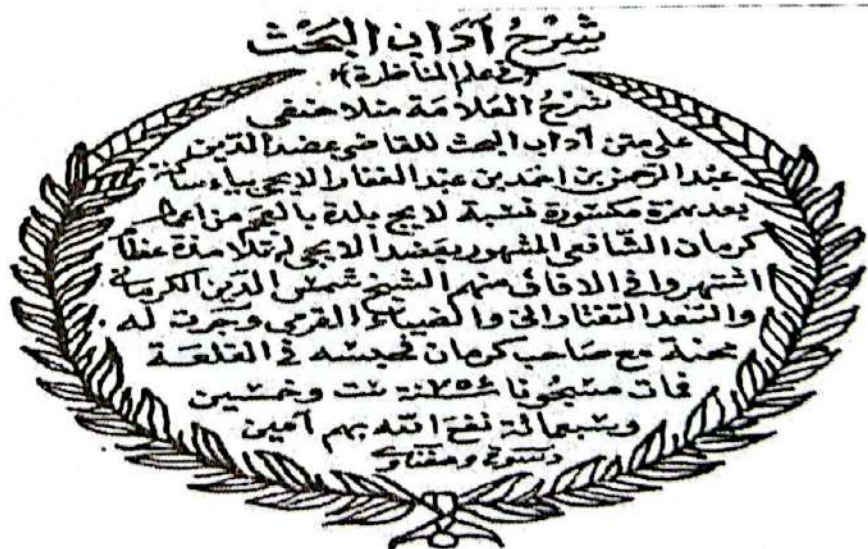 شرح آداب البحث
(في علم المناظرة)
شرح العلامة منلا حنفي
على متن آداب البحث للقاضي عضد الدين
عبد الرحمن بن احمد بن عبد الغفار الايجي بياء ساكنة
بعد همزة مكسورة نسبة لايج بلدة بالعجم من اعمال
كرمان الشافعي المشهور بعضد الايجي له تلامذة عظام
اشتهروا في الافاق منهم الشيخ شمس الدين الكرماني
والسعد التفتازاني والضياء القرمي وجرت له
محنة مع صاحب كرمان فحبسه في القلعة
فمات مسجونا سنة ٧٥٦ ست وخمسين
وسبعمائة نفع الله بهم آمين